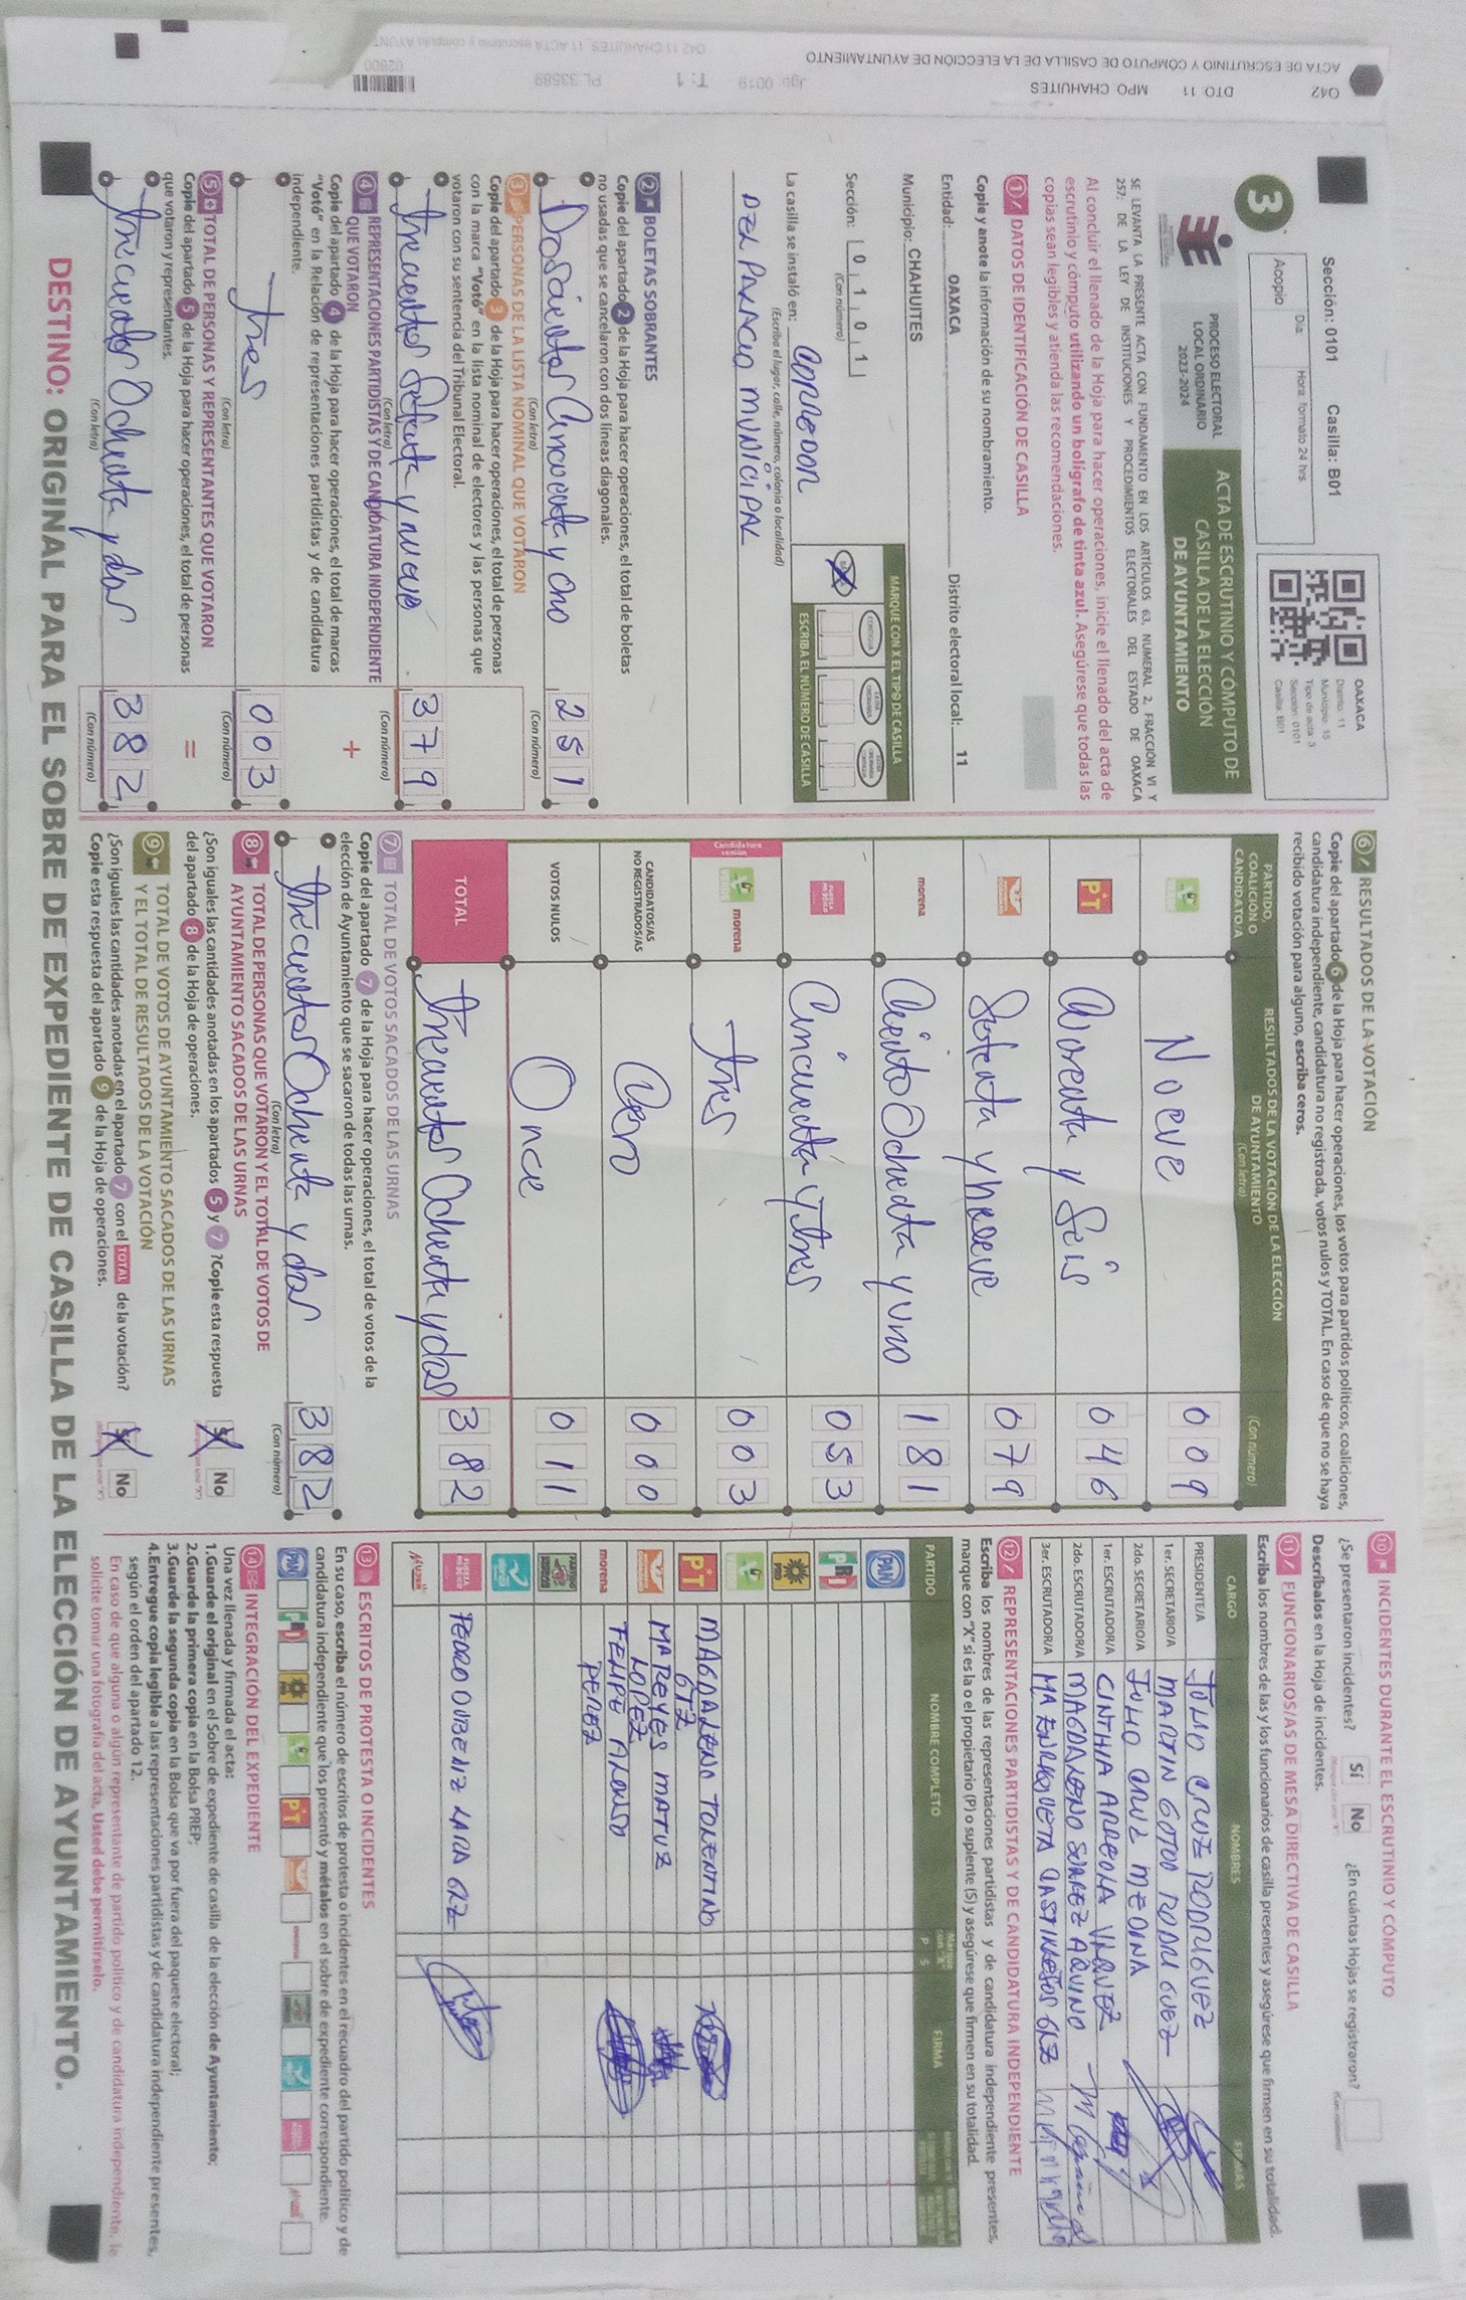 ACTA DE ESCRUTINIO Y CÓMPUTO DE CASILLA DE LA ELECCIÓN DE AYUNTAMIENTO
042 DTO 11 MPO CHAHUITES
Jgo: 0019 T: 1 PL 33589
02800
Sección: 0101 Casilla: B01
3
Acopio
Día:
Hora: formato 24 hrs
OAXACA
Distrito: 11
Municipio: 15
Tipo de acta: 3
Sección: 0101
Casilla: B01
PROCESO ELECTORAL
LOCAL ORDINARIO
2023-2024
ACTA DE ESCRUTINIO Y CÓMPUTO DE
CASILLA DE LA ELECCIÓN
DE AYUNTAMIENTO
SE LEVANTA LA PRESENTE ACTA CON FUNDAMENTO EN LOS ARTÍCULOS 63, NUMERAL 2, FRACCIÓN VI Y
257; DE LA LEY DE INSTITUCIONES Y PROCEDIMIENTOS ELECTORALES DEL ESTADO DE OAXACA
Al concluir el llenado de la Hoja para hacer operaciones, inicie el llenado del acta de
escrutinio y cómputo utilizando un bolígrafo de tinta azul. Asegúrese que todas las
copias sean legibles y atienda las recomendaciones.
1 DATOS DE IDENTIFICACIÓN DE CASILLA
Copie y anote la información de su nombramiento.
Entidad: OAXACA Distrito electoral local: 11
Municipio: CHAHUITES
Sección: 0 1 0 1
(Con número)
MARQUE CON X EL TIPO DE CASILLA
ESCRIBA EL NÚMERO DE CASILLA
La casilla se instaló en: CORREDOR
(Escriba el lugar, calle, número, colonia o localidad)
DEL PALACIO MUNICIPAL
2 BOLETAS SOBRANTES
Copie del apartado 2 de la Hoja para hacer operaciones, el total de boletas
no usadas que se cancelaron con dos líneas diagonales.
Doscientos Cincuenta y Uno 2 5 1
(Con letra) (Con número)
3 PERSONAS DE LA LISTA NOMINAL QUE VOTARON
Copie del apartado 3 de la Hoja para hacer operaciones, el total de personas
con la marca "Votó" en la lista nominal de electores y las personas que
votaron con su sentencia del Tribunal Electoral.
Trecientos Setenta y nueve 3 7 9
(Con letra) (Con número)
4 REPRESENTACIONES PARTIDISTAS Y DE CANDIDATURA INDEPENDIENTE
QUE VOTARON
Copie del apartado 4 de la Hoja para hacer operaciones, el total de marcas
"Votó" en la Relación de representaciones partidistas y de candidatura
independiente.
+
Tres 0 0 3
(Con letra) (Con número)
5 TOTAL DE PERSONAS Y REPRESENTANTES QUE VOTARON
Copie del apartado 5 de la Hoja para hacer operaciones, el total de personas
que votaron y representantes.
=
Trecientos Ochenta y dos 3 8 2
(Con letra) (Con número)
6 RESULTADOS DE LA VOTACIÓN
Copie del apartado 6 de la Hoja para hacer operaciones, los votos para partidos políticos, coaliciones,
candidatura independiente, candidatura no registrada, votos nulos y TOTAL. En caso de que no se haya
recibido votación para alguno, escriba ceros.
PARTIDO, COALICIÓN O CANDIDATO/A
RESULTADOS DE LA VOTACIÓN DE LA ELECCIÓN DE AYUNTAMIENTO
(Con letra) (Con número)
Nueve 0 0 9
PT Cuorenta y Seis 0 4 6
Setenta y nueve 0 7 9
morena Ciento Ochenta y uno 1 8 1
FUERZA MÉXICO Cincuenta y tres 0 5 3
Candidatura común
morena Tres 0 0 3
CANDIDATOS/AS NO REGISTRADOS/AS Cero 0 0 0
VOTOS NULOS Once 0 1 1
TOTAL Trecientos Ochenta y dos 3 8 2
7 TOTAL DE VOTOS SACADOS DE LAS URNAS
Copie del apartado 7 de la Hoja para hacer operaciones, el total de votos de la
elección de Ayuntamiento que se sacaron de todas las urnas.
Trecientos Ochenta y dos 3 8 2
(Con letra) (Con número)
8 TOTAL DE PERSONAS QUE VOTARON Y EL TOTAL DE VOTOS DE
AYUNTAMIENTO SACADOS DE LAS URNAS
¿Son iguales las cantidades anotadas en los apartados 5 y 7 ? Copie esta respuesta
del apartado 8 de la Hoja de operaciones.
Sí No
9 TOTAL DE VOTOS DE AYUNTAMIENTO SACADOS DE LAS URNAS
Y EL TOTAL DE RESULTADOS DE LA VOTACIÓN
¿Son iguales las cantidades anotadas en el apartado 7 con el TOTAL de la votación?
Copie esta respuesta del apartado 9 de la Hoja de operaciones.
Sí No
10 INCIDENTES DURANTE EL ESCRUTINIO Y CÓMPUTO
¿Se presentaron incidentes? Sí No ¿En cuántas Hojas se registraron?
Descríbalos en la Hoja de incidentes.
11 FUNCIONARIOS/AS DE MESA DIRECTIVA DE CASILLA
Escriba los nombres de las y los funcionarios de casilla presentes y asegúrese que firmen en su totalidad.
CARGO NOMBRES FIRMAS
PRESIDENTE/A JULIO CRUZ RODRIGUEZ
1er. SECRETARIO/A MARTIN GOTOO RODRIGUEZ
2do. SECRETARIO/A JULIO CRUZ MEDINA
1er. ESCRUTADOR/A CINTHIA ARREOLA VAZQUEZ
2do. ESCRUTADOR/A MAGDALENO SUAREZ AQUINO
3er. ESCRUTADOR/A MA ENRIQUETA CASTILLEJOS GLZ
12 REPRESENTACIONES PARTIDISTAS Y DE CANDIDATURA INDEPENDIENTE
Escriba los nombres de las representaciones partidistas y de candidatura independiente presentes,
marque con "X" si es la o el propietario (P) o suplente (S) y asegúrese que firmen en su totalidad.
PARTIDO NOMBRE COMPLETO Marque con "X" P S FIRMA
PAN
PRI
PRD
PT MAGDALENO TOLENTINO GTZ
MA REYES MATUZ LOPEZ
morena FELIPE ALONSO PEREZ
FUERZA MÉXICO PEDRO OUBENIZ LARA GRZ
13 ESCRITOS DE PROTESTA O INCIDENTES
En su caso, escriba el número de escritos de protesta o incidentes en el recuadro del partido político y de
candidatura independiente que los presentó y métalos en el sobre de expediente correspondiente.
PAN PRI PRD PT
14 INTEGRACIÓN DEL EXPEDIENTE
Una vez llenada y firmada el acta:
1.Guarde el original en el Sobre de expediente de casilla de la elección de Ayuntamiento;
2.Guarde la primera copia en la Bolsa PREP;
3.Guarde la segunda copia en la Bolsa que va por fuera del paquete electoral;
4.Entregue copia legible a las representaciones partidistas y de candidatura independiente presentes,
según el orden del apartado 12.
En caso de que alguna o algún representante de partido político y de candidatura independiente, le
solicite tomar una fotografía del acta, Usted debe permitírselo.
DESTINO: ORIGINAL PARA EL SOBRE DE EXPEDIENTE DE CASILLA DE LA ELECCIÓN DE AYUNTAMIENTO.